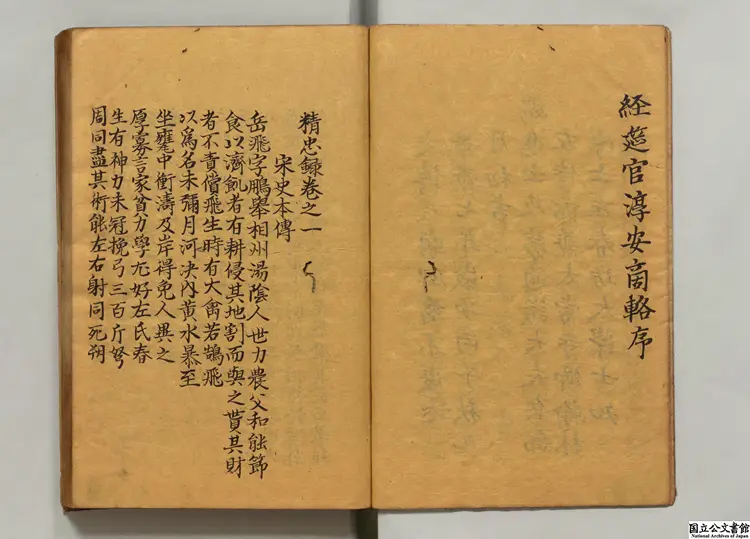 経筵官淳安商輅序
精忠録卷之一
宋史本傳
岳飛字鵬舉相州湯陰人世力農父和能節
食以濟飢者有耕侵其地割而與之貰其財
者不責償飛生時有大禽若鵠飛
以爲名未彌月河決内黄水暴至
坐甕中衝濤及岸得免人異之
厚寡言家貧力學尤好左氏春
生有神力未冠挽弓三百斤弩
周同盡其術能左右射同死朔
国立公文書館
National Archives of Japan